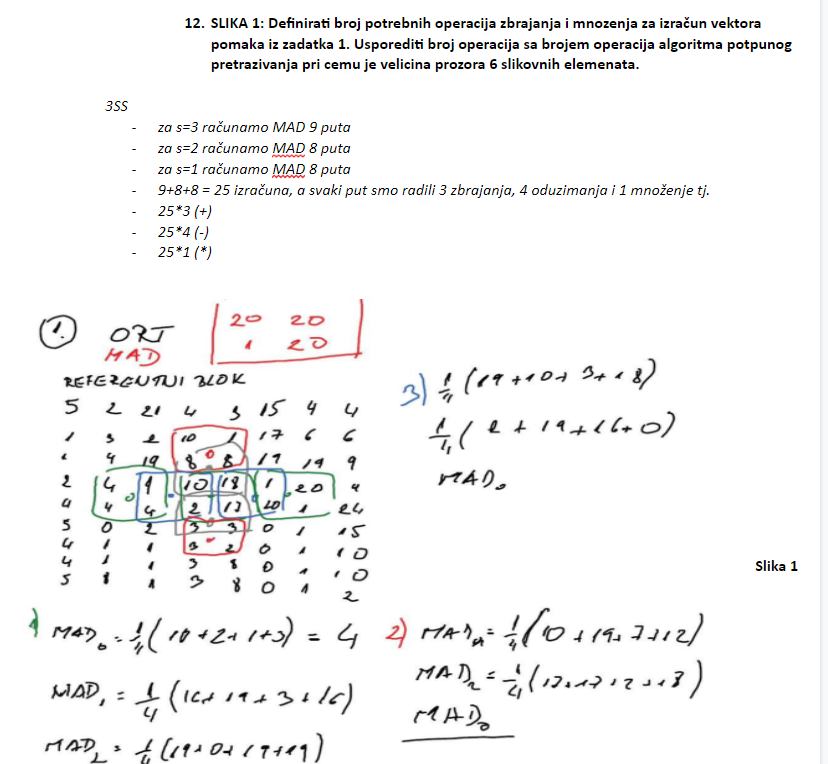 12. SLIKA 1: Definirati broj potrebnih operacija zbrajanja i mnozenja za izračun vektora
pomaka iz zadatka 1. Usporediti broj operacija sa brojem operacija algoritma potpunog
pretrazivanja pri cemu je velicina prozora 6 slikovnih elemenata.
3SS
- za s=3 računamo MAD 9 puta
- za s=2 računamo MAD 8 puta
- za s=1 računamo MAD 8 puta
- 9+8+8 = 25 izračuna, a svaki put smo radili 3 zbrajanja, 4 oduzimanja i 1 množenje tj.
- 25*3 (+)
- 25*4 (-)
- 25*1 (*)
1. ORT
MAD
20 20
1 20
REFERENTNI BLOK
5 2 21 4 3 15 4 4
10 1 17 6 6
4 19 8 8 19 19 9
2 4 1 10 18 1 20 4
4 4 4 2 13 20 1 24
5 0 2 3 3 0 1 15
4 1 1 3 2 0 1 10
4 1 1 3 8 0 1 10
5 8 1 3 8 0 1
2
3) 1/4 (19+10+3+18)
1/4 (2+19+16+0)
MAD₀
Slika 1
1) MAD₀ = 1/4 (10+2+1+3) = 4
MAD₁ = 1/4 (16+19+3+16)
MAD₂ = 1/4 (19+0+19+19)
2) MAD₁ = 1/4
MAD₂ = 1/4
MAD₀